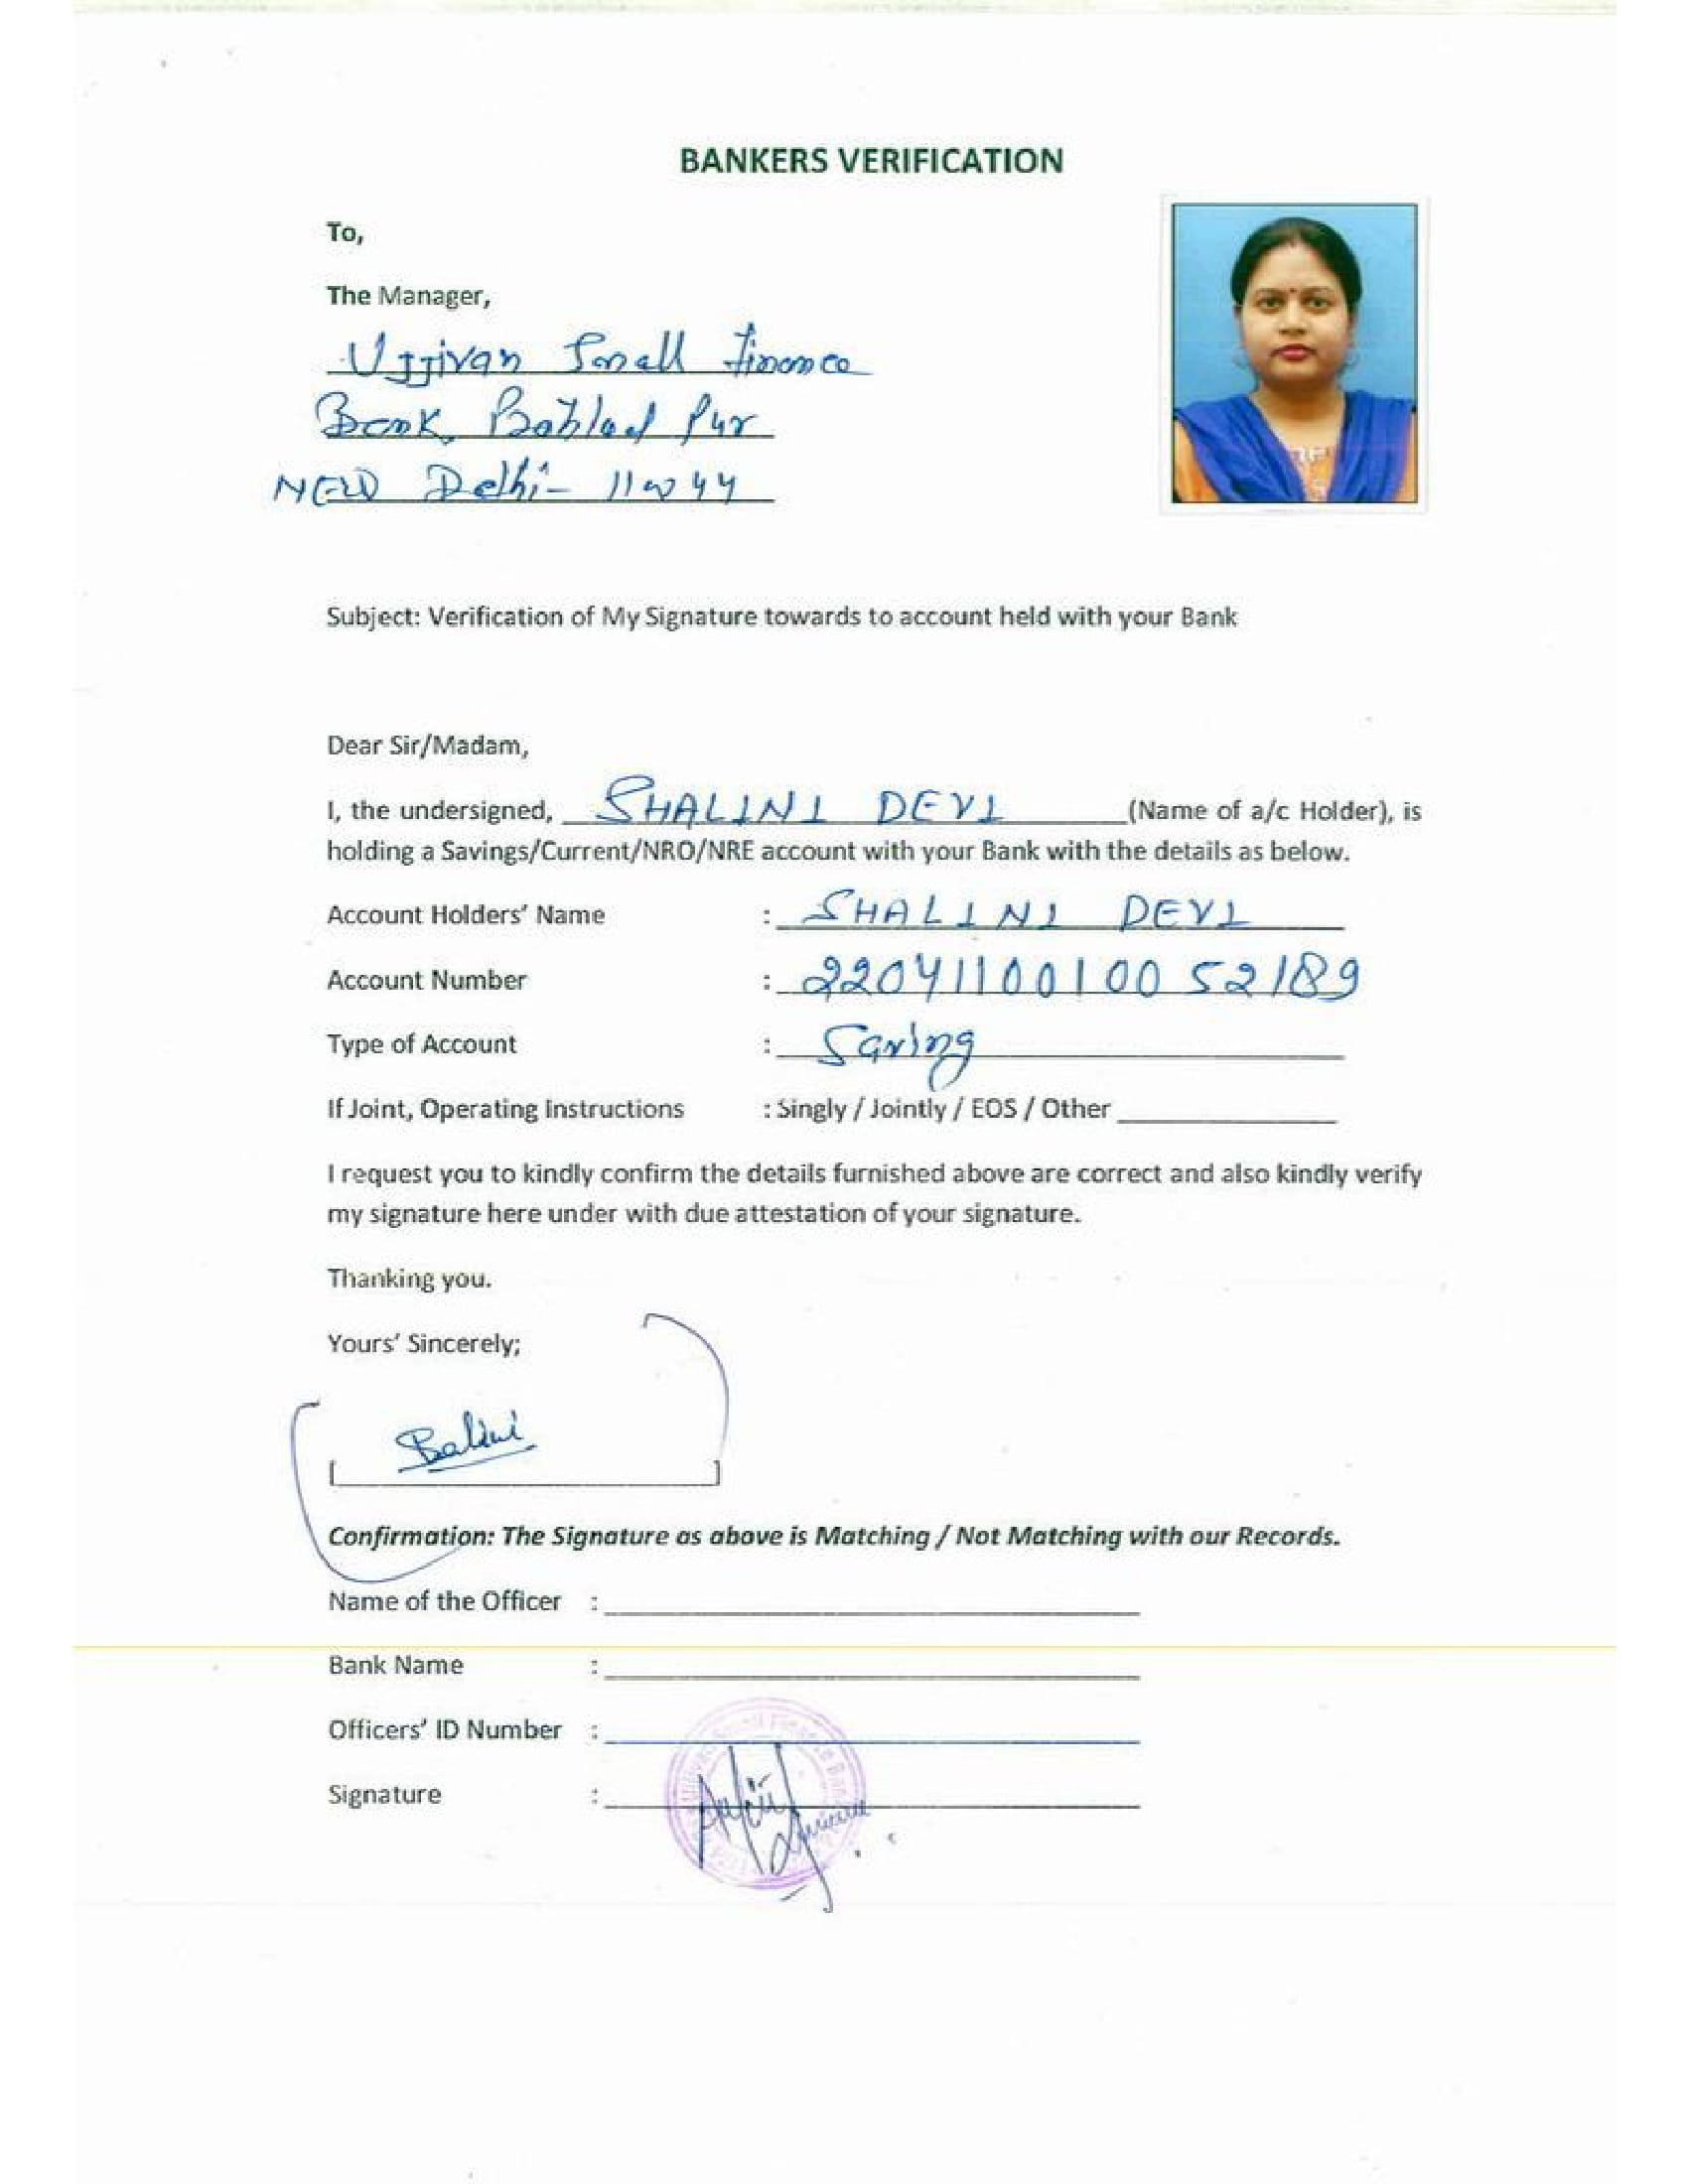 BANKERS VERIFICATION
To,
The Manager,
Ujjivan Small Finance
Bank, Bahlad Pur
NEW Delhi- 110044
Subject: Verification of My Signature towards to account held with your Bank
Dear Sir/Madam,
I, the undersigned, SHALINI DEVI (Name of a/c Holder), is
holding a Savings/Current/NRO/NRE account with your Bank with the details as below.
Account Holders' Name : SHALINI DEVI
Account Number : 2204110010052189
Type of Account : Saving
If Joint, Operating Instructions : Singly / Jointly / EOS / Other
I request you to kindly confirm the details furnished above are correct and also kindly verify
my signature here under with due attestation of your signature.
Thanking you.
Yours' Sincerely;
[ ]
Confirmation: The Signature as above is Matching / Not Matching with our Records.
Name of the Officer :
Bank Name :
Officers' ID Number :
Signature :